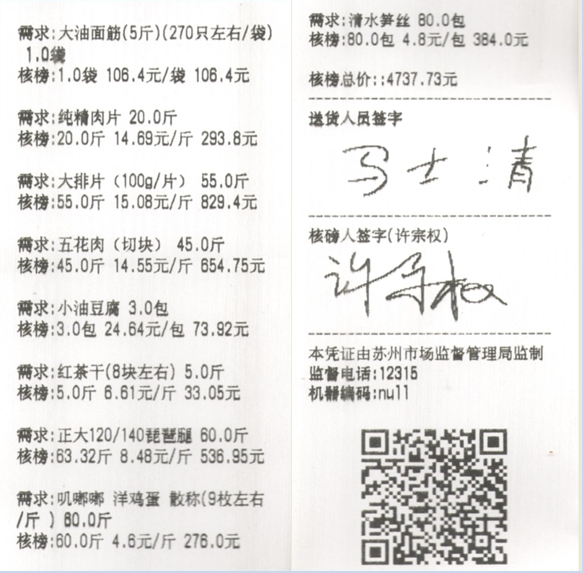 需求:大油面筋(5斤)(270只左右/袋)
1.0袋
核榜:1.0袋 106.4元/袋 106.4元
需求:纯精肉片 20.0斤
核榜:20.0斤 14.69元/斤 293.8元
需求:大排片（100g/片） 55.0斤
核榜:55.0斤 15.08元/斤 829.4元
需求:五花肉（切块） 45.0斤
核榜:45.0斤 14.55元/斤 654.75元
需求:小油豆腐 3.0包
核榜:3.0包 24.64元/包 73.92元
需求:红茶干(8块左右) 5.0斤
核榜:5.0斤 6.61元/斤 33.05元
需求:正大120/140琵琶腿 60.0斤
核榜:63.32斤 8.48元/斤 536.95元
需求:叽嘟嘟 洋鸡蛋 散称(9枚左右
/斤 ) 60.0斤
核榜:60.0斤 4.6元/斤 276.0元
需求:清水笋丝 80.0包
核榜:80.0包 4.8元/包 384.0元
核榜总价::4737.73元
送货人员签字
马士清
核磅人签字(许宗权)
许宗权
本凭证由苏州市场监督管理局监制
监督电话:12315
机器编码:null